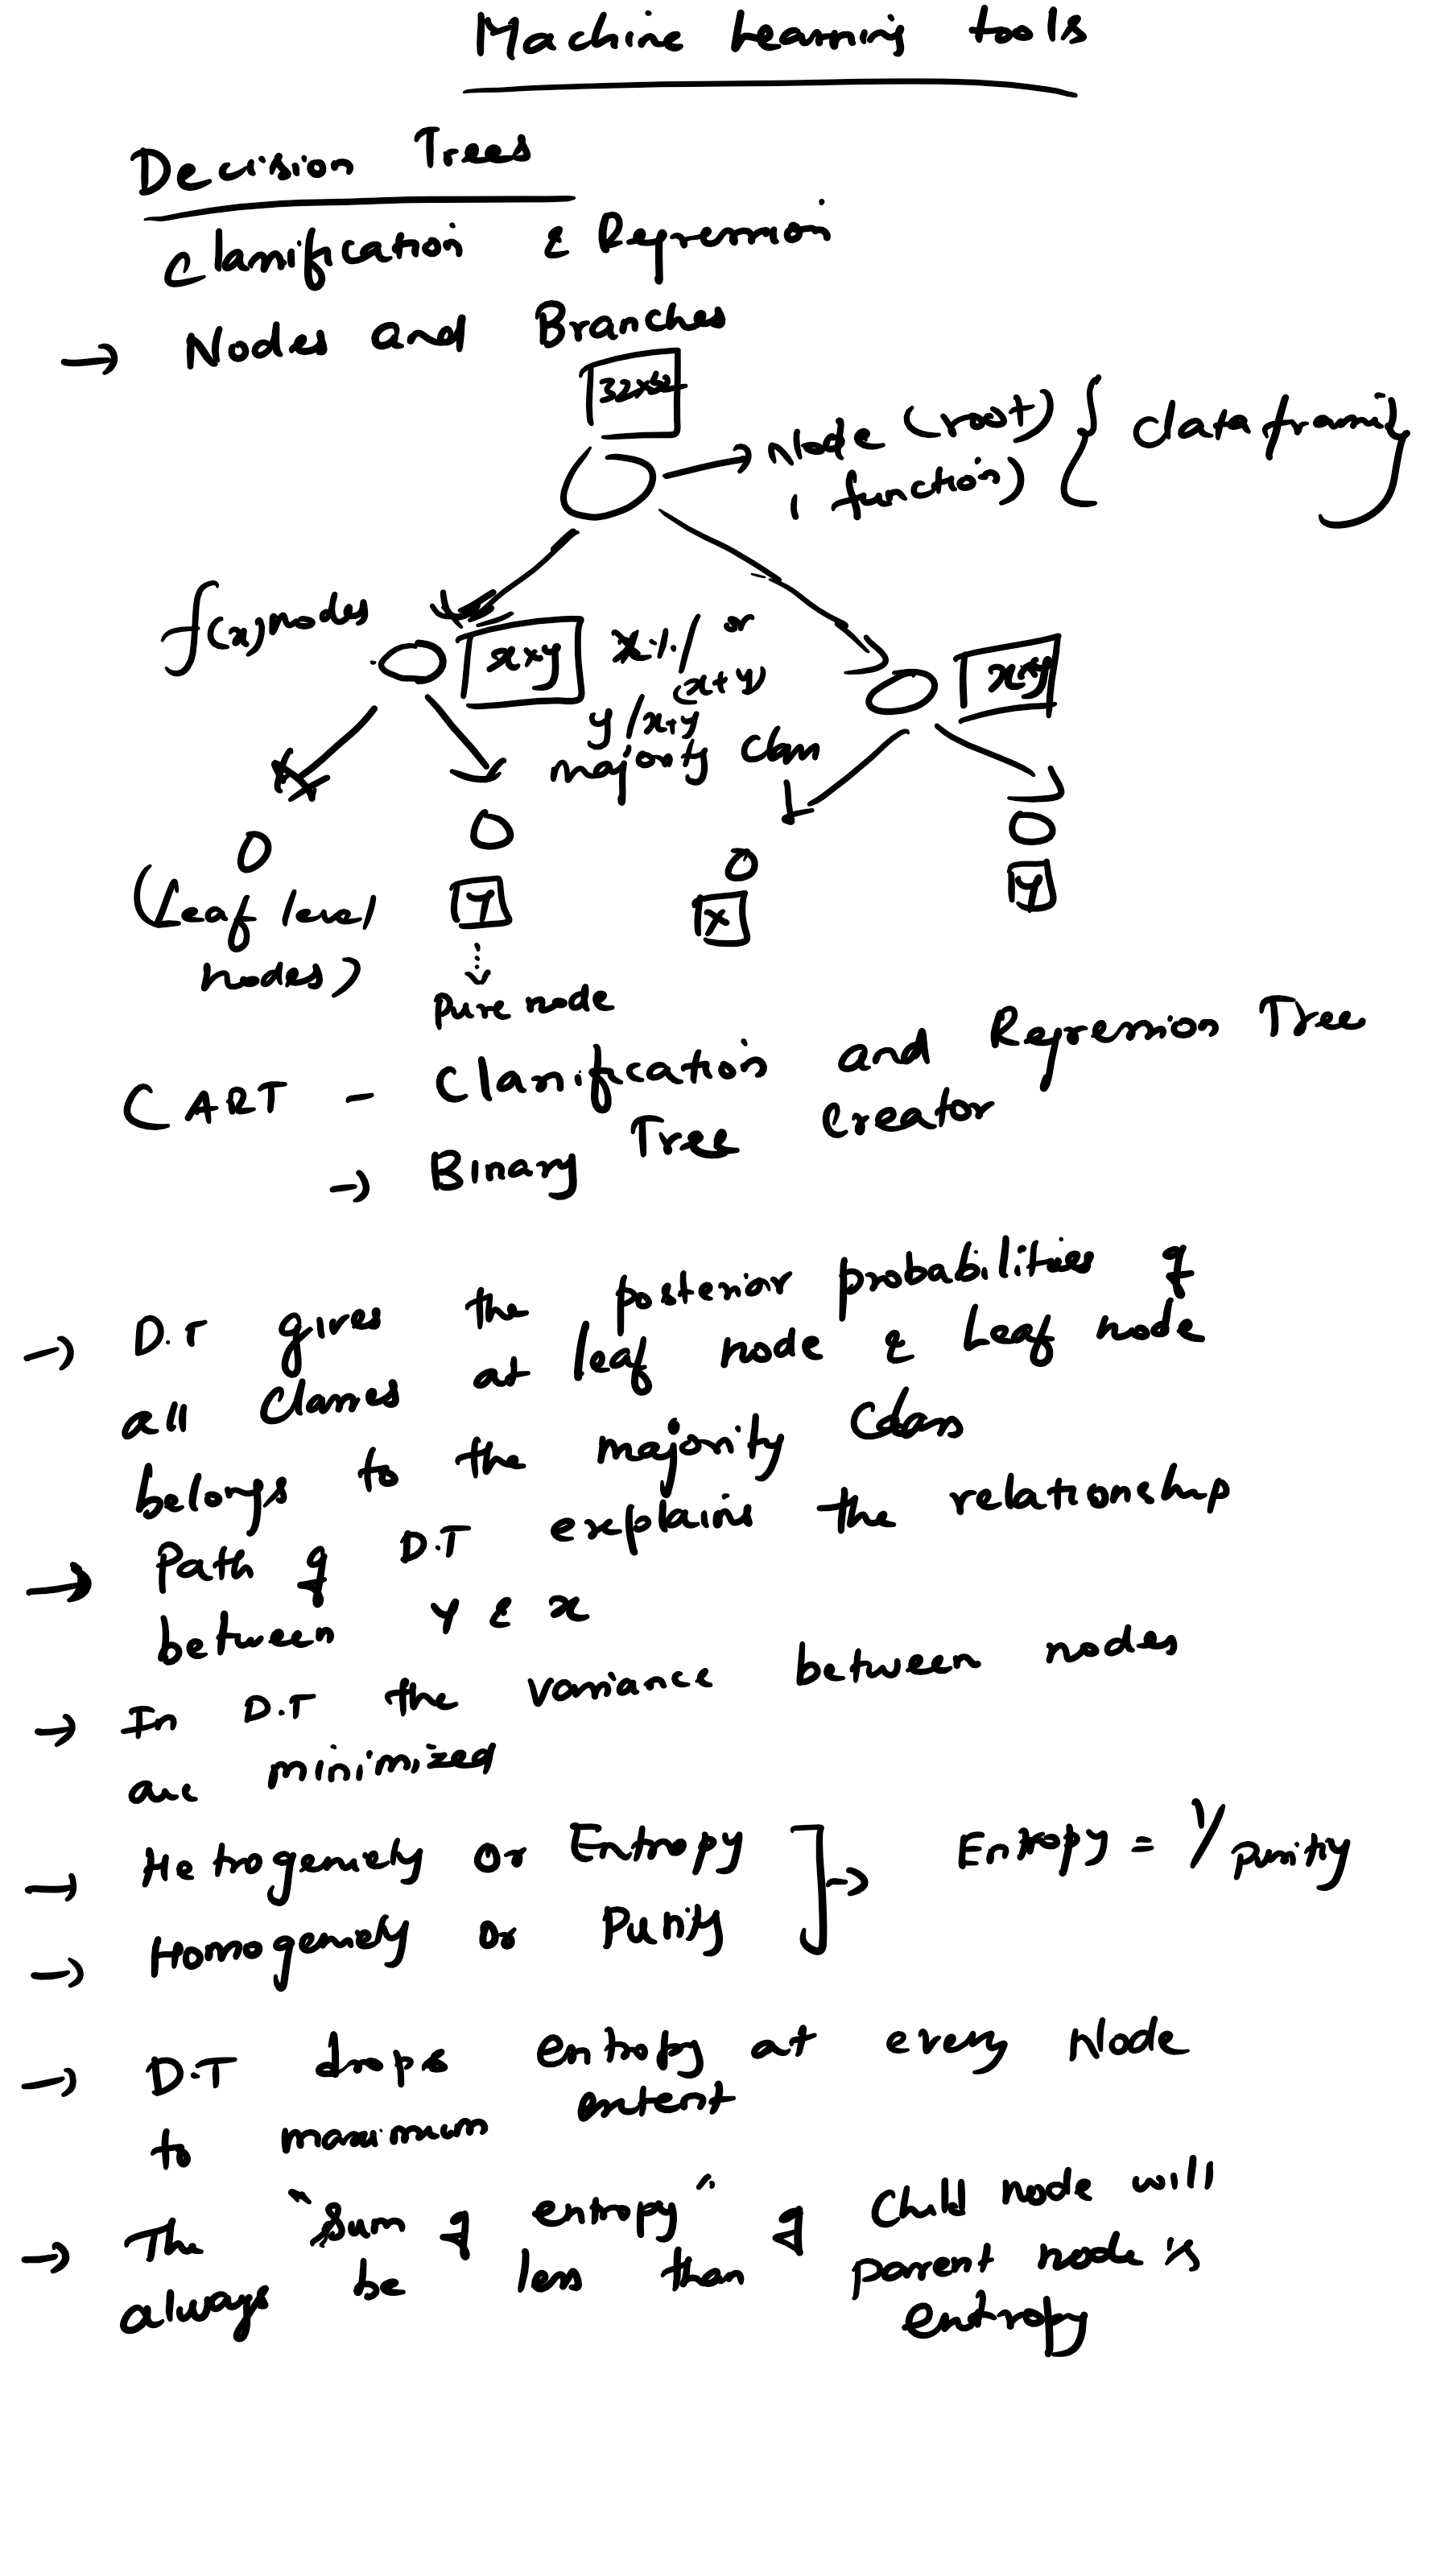 Machine Learning tools
Decision Trees
Classification & Regression
→ Nodes and Branches
32x32
→ Node (root) { dataframe }
( function)
f(x) nodes
x+y
x./. / (x+y) or
y/x+y
majority class
x+y
(Leaf level
nodes)
Y
X
Y
Pure node
CART - Classification and Regression Tree
→ Binary Tree Creator
→ D.T gives the posterior probabilities of
all classes at leaf node & Leaf node
belongs to the majority class
→ Path of D.T explains the relationship
between Y & x
→ In D.T the variance between nodes
are minimized
→ Hetrogeniety or Entropy
→ Homogeniety or Purity
→ Entropy = 1/Purity
→ D.T drops entropy at every Node
to maximum extent
→ The "Sum of entropy" of Child node will
always be less than parent node's
entropy